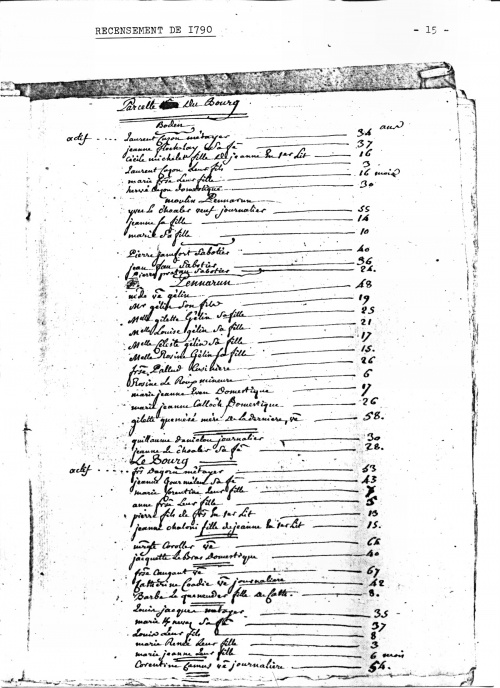 RECENSEMENT DE 1790 - 15 -
Parcelle Du Bourg
Boden ans
actif laurent métayer 34
jeanne Sa fe 37
Cécile michelet fille De jeanne En 1er Lit 16
Laurent Leur fils 3
marie Leur fille 16 mois
hervé domestique 30
moulin Lennarun
yves Le choaler veuf journalier 55
jeanne Sa fille 14
marie Sa fille 10
Pierre Sabotier 40
jean Sabotier 36
pierre Sabotier 24.
Lennarun
ve gélin 48
Mr gélin Son fils 19
Melle gilette Gélin Sa fille 25
Melle Louise gélin Sa fille 21
Melle Céleste gélin Sa fille 17
Melle Rosine Gélin Sa fille 15.
26
Rosine Le Roux mineure 6
marie jeanne Even Domestique 17
marie jeanne Calloch Domestique 26
gilette quéméré mère De La Dernière, ve 58.
guillaume daniélou journalier 30
jeanne Le choaler Sa fe 28.
Le Bourg
actif métayer 53
jeanne gourmelen Sa fe 43
marie Corentine Leur fille
anne Leur fille 5
pierre fils de En 1er Lit 13
jeanne fille de jeanne En 1er Lit 15.
Coroller ve 66
jacquette Le Bras Domestique 40
Caugant ve 67
Catherine Coadic ve journalière 42
Barbe Le quemener fille De Cath. 8.
Louis jacques métayer 35
marie Sa fe 37
Louis Leur fils 8
marie Renée Leur fille 3
marie jeanne Leur fille 6 mois
Corentine Camus ve journalière 54.